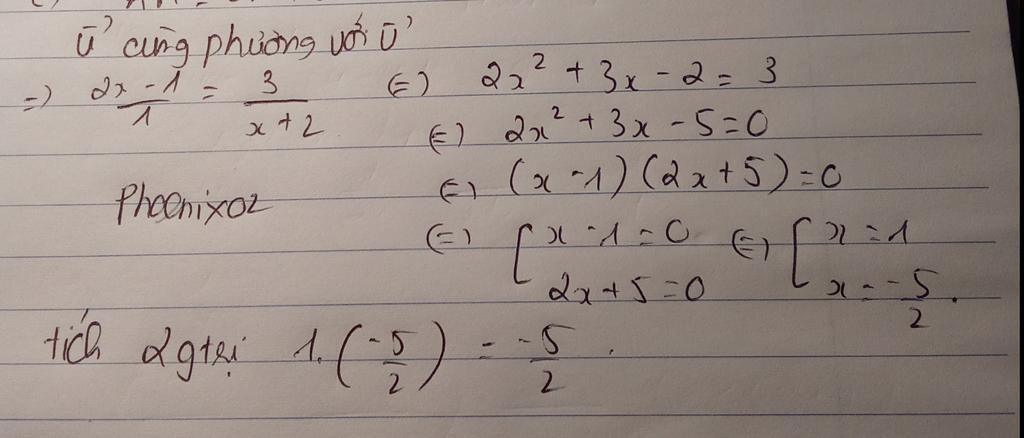 ū' cùng phương với ū'
=) 2x - 1 / 1 = 3 / x + 2 (=) 2x² + 3x - 2 = 3
(=) 2x² + 3x - 5 = 0
Phoenixoz (=) (x - 1) (2x + 5) = 0
(=) [ x - 1 = 0 (=) [ x = 1
2x + 5 = 0 x = -5/2.
tích 2 gtrị 1. (-5/2) = -5/2.